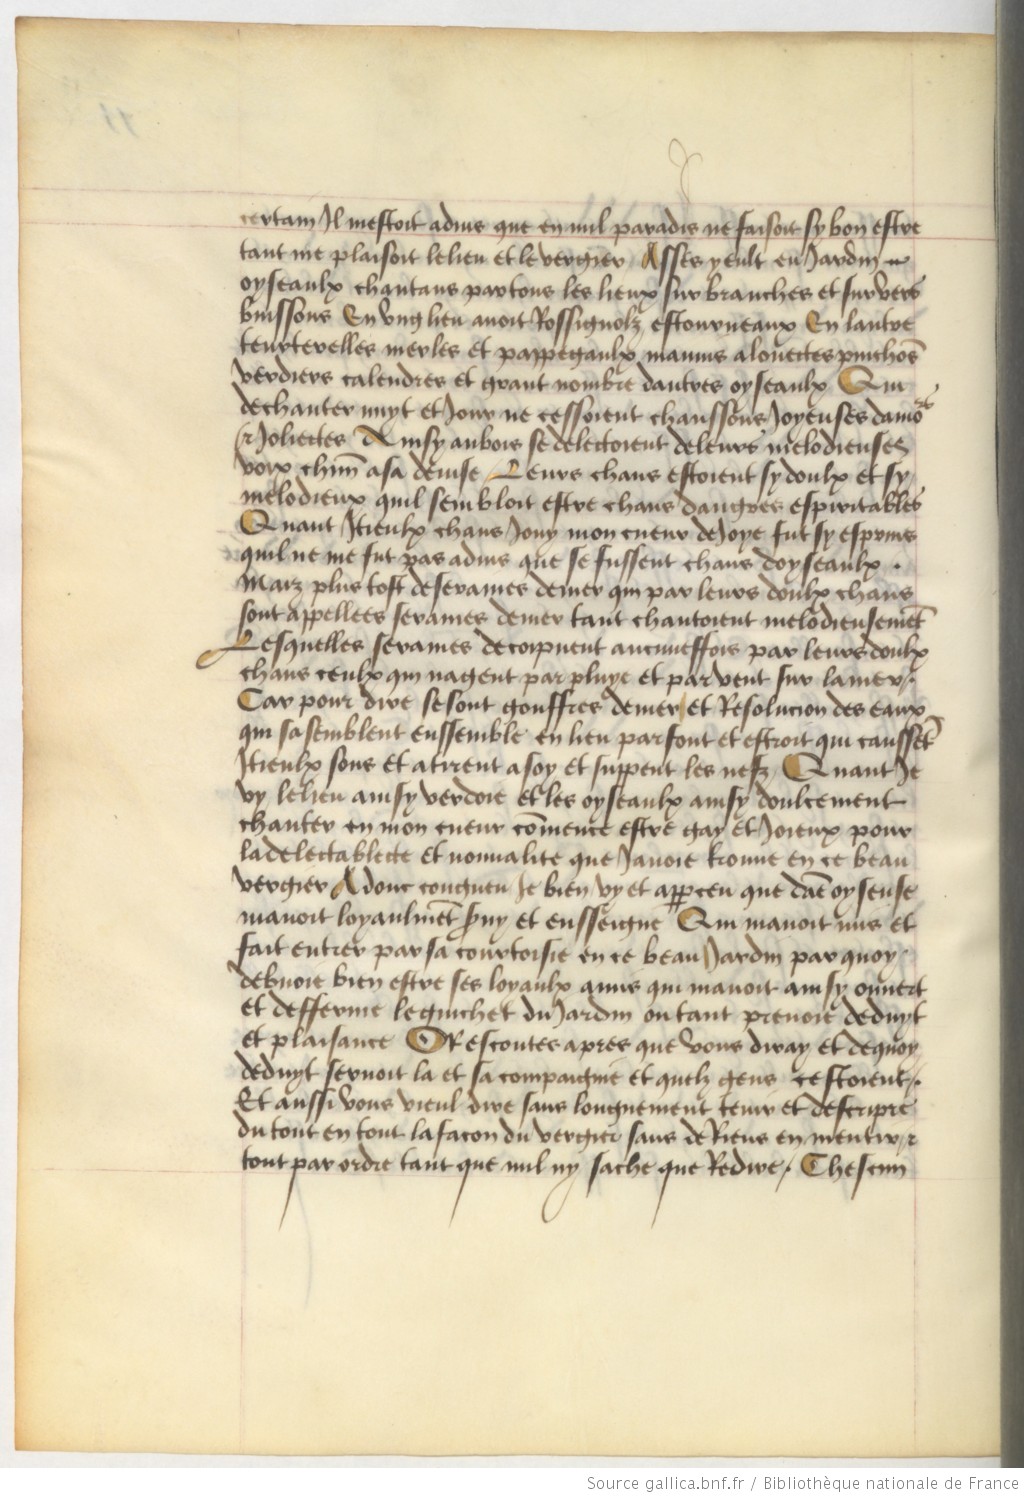 certain Il mestoit aduis que en nul paradis ne faisoit sy bon estre
tant me plaisoit le lieu et le vergier Asses y eult en Jardin
oyseaulx chantans par tous les lieux sur branches et sur vers
buissons En vng lieu auoit Rossignolz estourneaux En lautre
teurterelles merles et pappegaulx mauuis alouettes pinchōs
verdiers calendres et grant nombre dautres oyseaulx Qui
de chanter nuyt et Jour ne cessoient chanssons Joyeuses
et Joliettes Ainsy au bois se delectoient de leurs melodieuses
voix chūn a sa deuise Leurs chans estoient sy doulx et sy
melodieux quil sembloit estre chans dangres espiritables
Quant Itieulx chans Jouy mon cueur de Joye fut sy espruis
quil ne me fut pas aduis que se fussent chans doyseaulx .
Maiz plus tost de seraines de mer qui par leurs doulx chans
sont appellees seraines de mer tant chantoient melodieusemēt
Lesquelles seraines decoipuent aucuneffois par leurs doulx
chans ceulx qui nagent par pluye et par vent sur la mer /.
Car pour dire se sont gouffres de mer / et Resolucion des eaux
qui sasemblent enssemble en lieu parfont et estroit qui caussēt
Itieulx sons et atirent a soy et suppent les nefz Quant Je
vy le lieu ainsy verdoie et les oyseaulx ainsy doulcement
chanter en mon cueur cōmence estre gay et Joieux pour
la delectablete et nouualite que Jauoie trouue en ce beau
vergier Adonc congneu Je bien vy et apꝑceu que dāe oyseuse
mauoit loyaulmēt ẜuy et ensseigne Qui mauoit mis et
fait entrer par sa courtoisie en ce beau Jardin par quoy
debuoie bien estre ses loyaulx amis qui mauoit ainsy ouuert
et defferme le guichet du Jardin ou tant prenoie deduyt
et plaisance ORescoutes apres que vous diray et de quoy
deduyt seruoit la et sa compaignie et quelz gens cestoient /.
Et aussi vous vieul dire sans longuement tenir et descripre
du tout en tout la facon du vergier sans de Riens en mentir / et
tout par ordre tant que nul ny sache que Redire /. Chescun
Source gallica.bnf.fr / Bibliothèque nationale de France